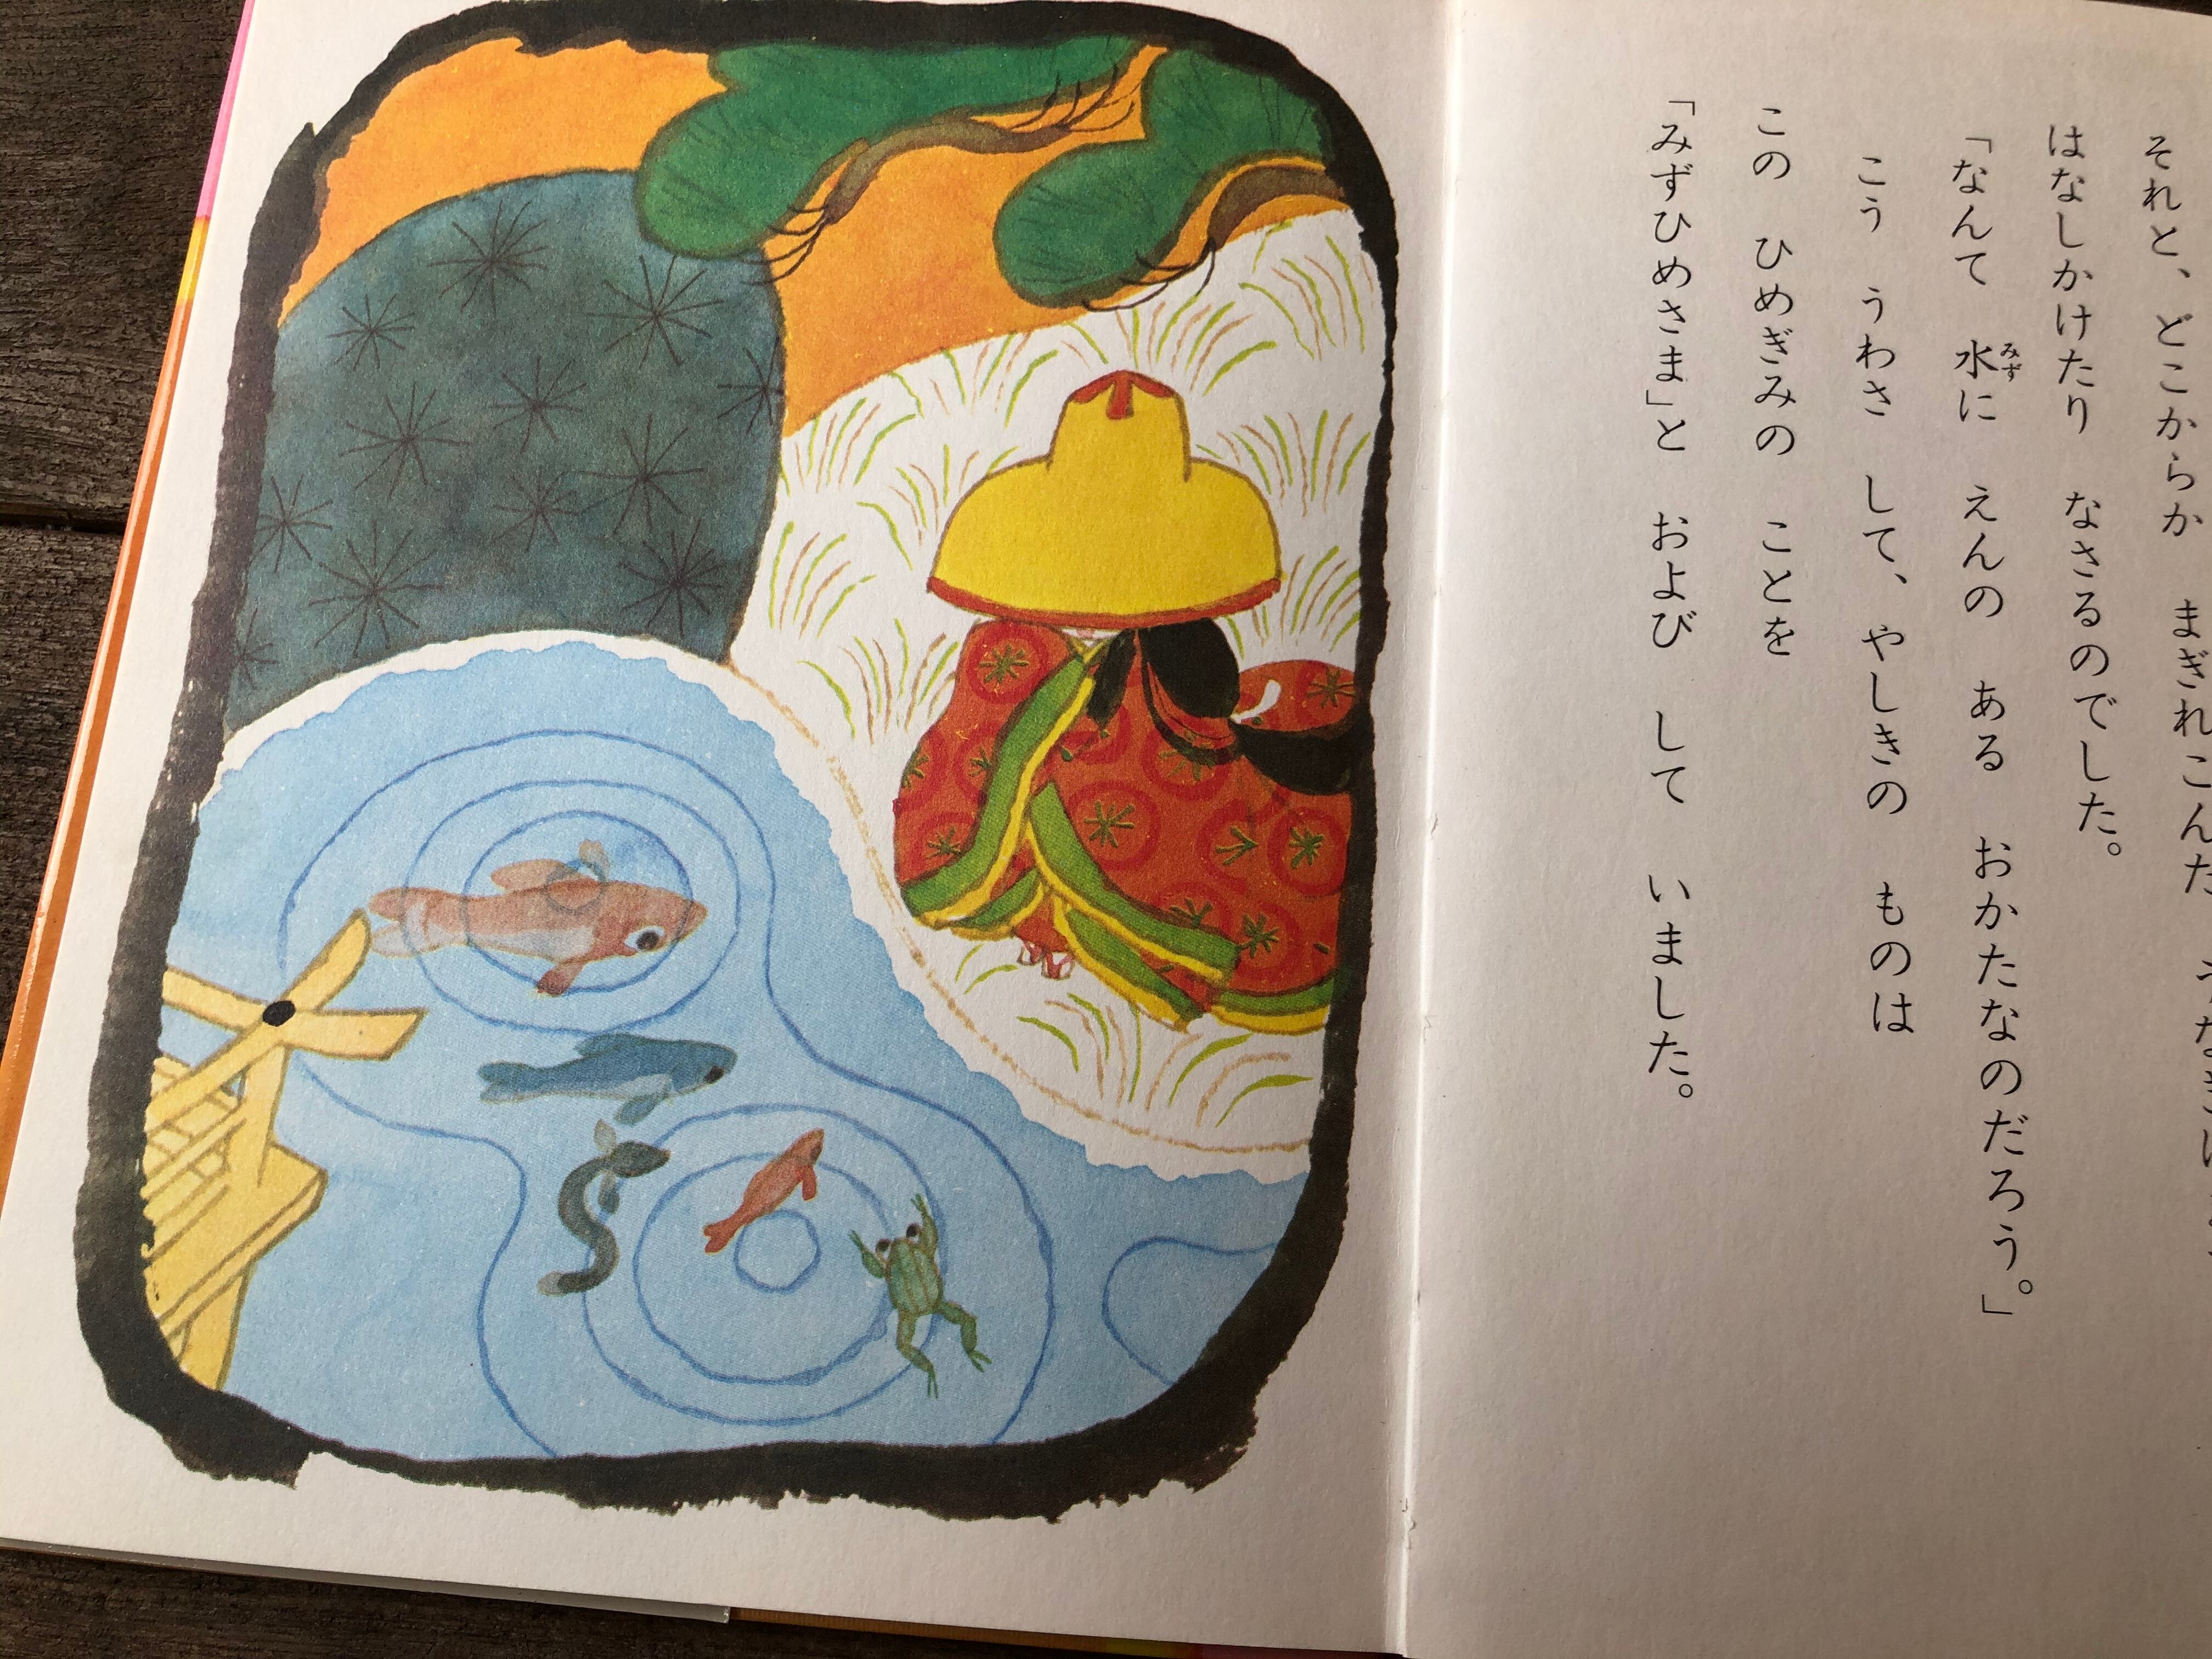 それと、どこからか まぎれこんだ
はなしかけたり なさるのでした。
「なんて 水に えんの ある おかたなのだろう。」
みず
こう うわさ して、やしきの ものは
この ひめぎみの ことを
「みずひめさま」と および して いました。